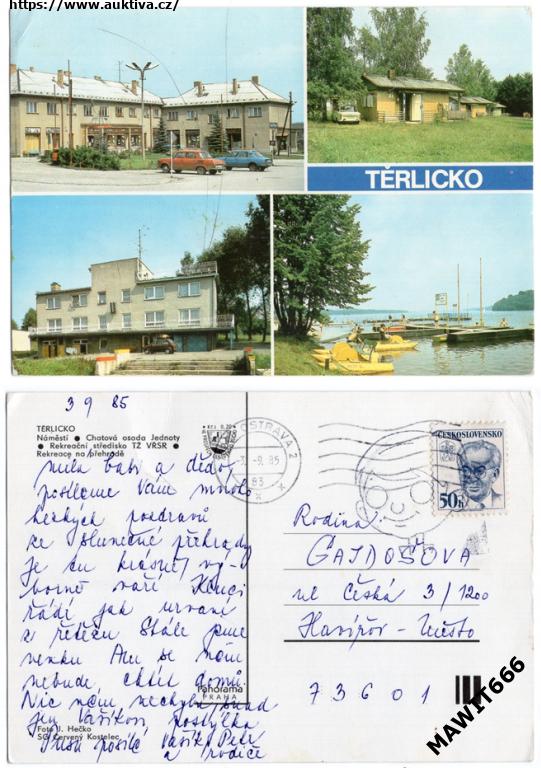 https://www.auktiva.cz/
TĚRLICKO
3 9 85
TĚRLICKO
Náměstí ● Chatová osada Jednoty
● Rekreační středisko TZ VRSR ●
Rekreace na přehradě
milá babi a dědo
posíláme Vám mnoho
hezkých pozdravů
ze slunečné přehrady
je tu krásně, vý-
borně vaří Kluci
řádí jak urvaní
z řetězu Stále jsme
venku Ani se nám
nebude chtít domů.
Nic nám nechybí snad
jen Vašíkovi postýlka
Pusu posílá Vašík Petr
a rodiče
Panorama
PRAHA
Foto J. Hečko
SG Červený Kostelec
OSTRAVA 2
3.-9.85
ČESKOSLOVENSKO
50h
Rodina
GAJDOŠOVA
ul Česká 3/1200
Havířov-Město
73601
MAWIT666